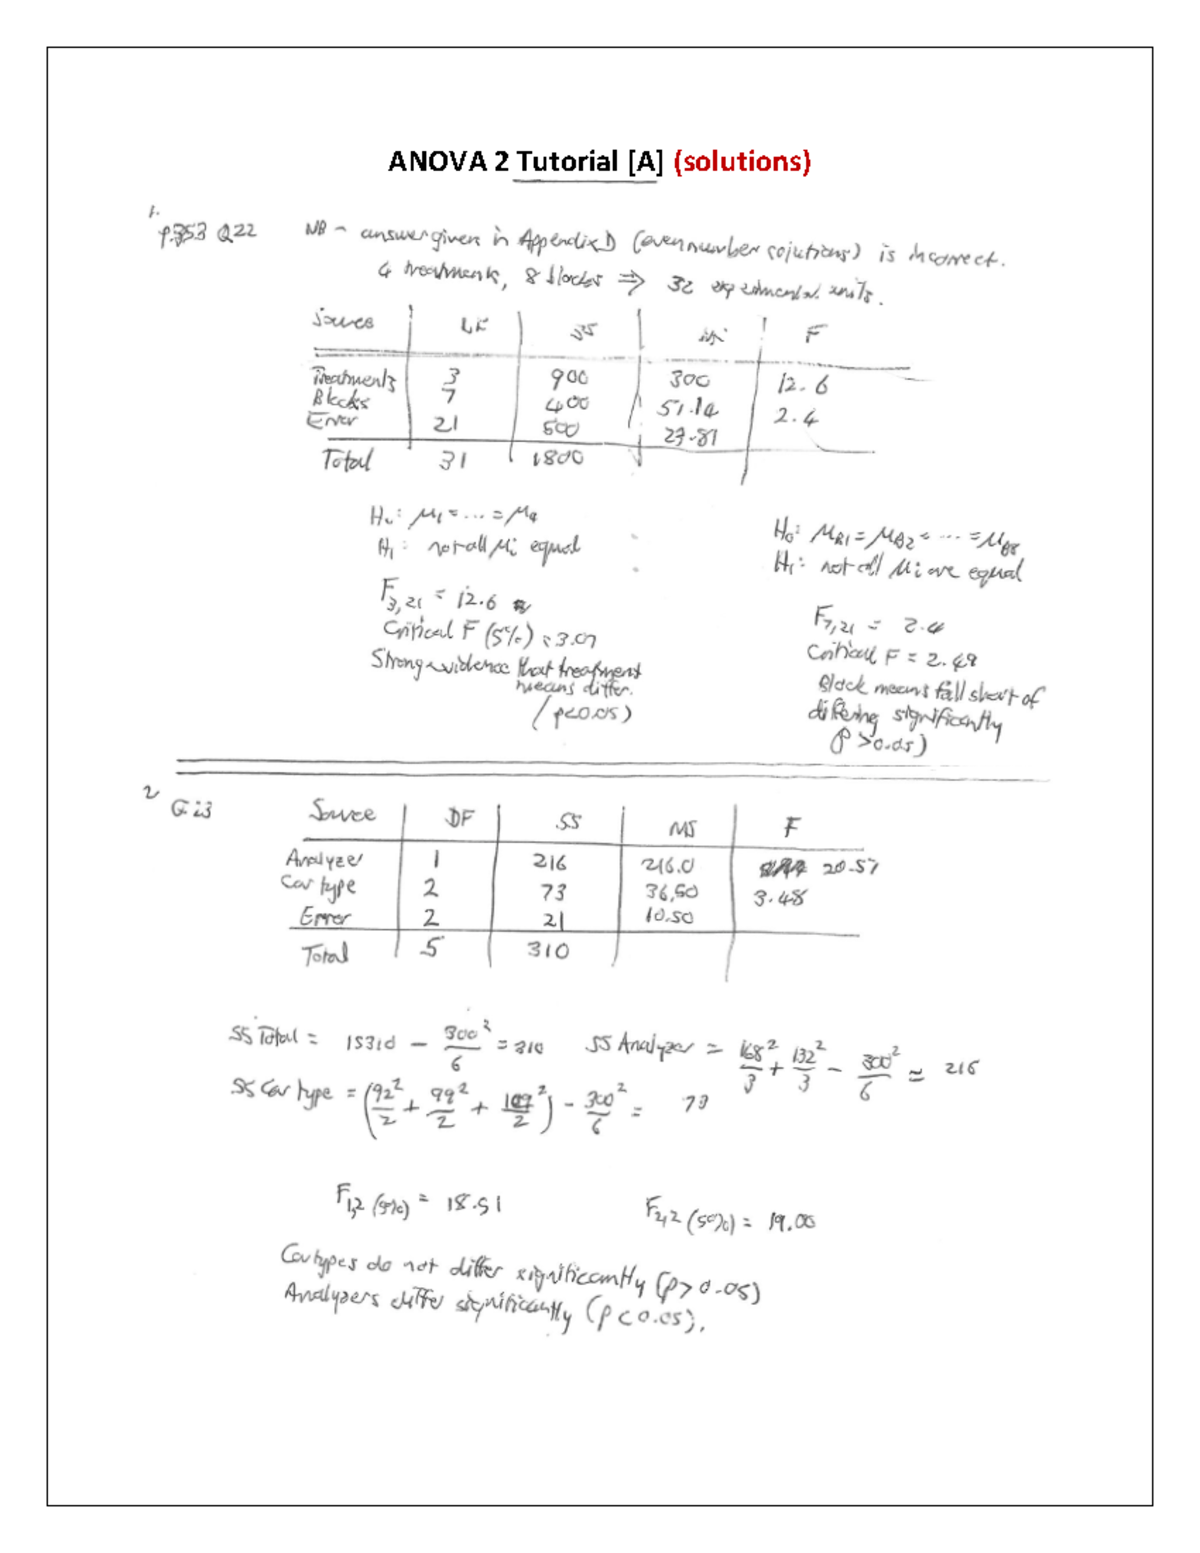 ANOVA 2 Tutorial [A] (solutions)
1.
p.353 Q22 NB - answer given in Appendix D (even number solutions) is incorrect.
4 treatments, 8 blocks ⇒ 32 experimental units.
Source DF SS MS F
Treatments 3 900 300 12.6
Blocks 7 400 57.14 2.4
Error 21 500 23.81
Total 31 1800
H₀: μ₁ = ... = μ₄
H₁: not all μi equal
F3,21 = 12.6
Critical F (5%) = 3.07
Strong evidence that treatment
means differ.
(p<0.05)
H₀: μB1 = μB2 = ... = μB8
H₁: not all μi are equal
F7,21 = 2.4
Critical F = 2.49
Block means fall short of
differing significantly
(p >0.05)
2 Q 23
Source DF SS MS F
Analyzer 1 216 216.0 20.57
Car type 2 73 36.50 3.48
Error 2 21 10.50
Total 5 310
SS Total = 15310 - 300²/6 = 310 SS Analyzer = 168²/3 + 132²/3 - 300²/6 = 216
SS Car type = (92²/2 + 99²/2 + 109²/2) - 300²/6 = 73
F1,2 (5%) = 18.51 F2,2 (5%) = 19.00
Car types do not differ significantly (p>0.05)
Analyzers differ significantly (p<0.05).